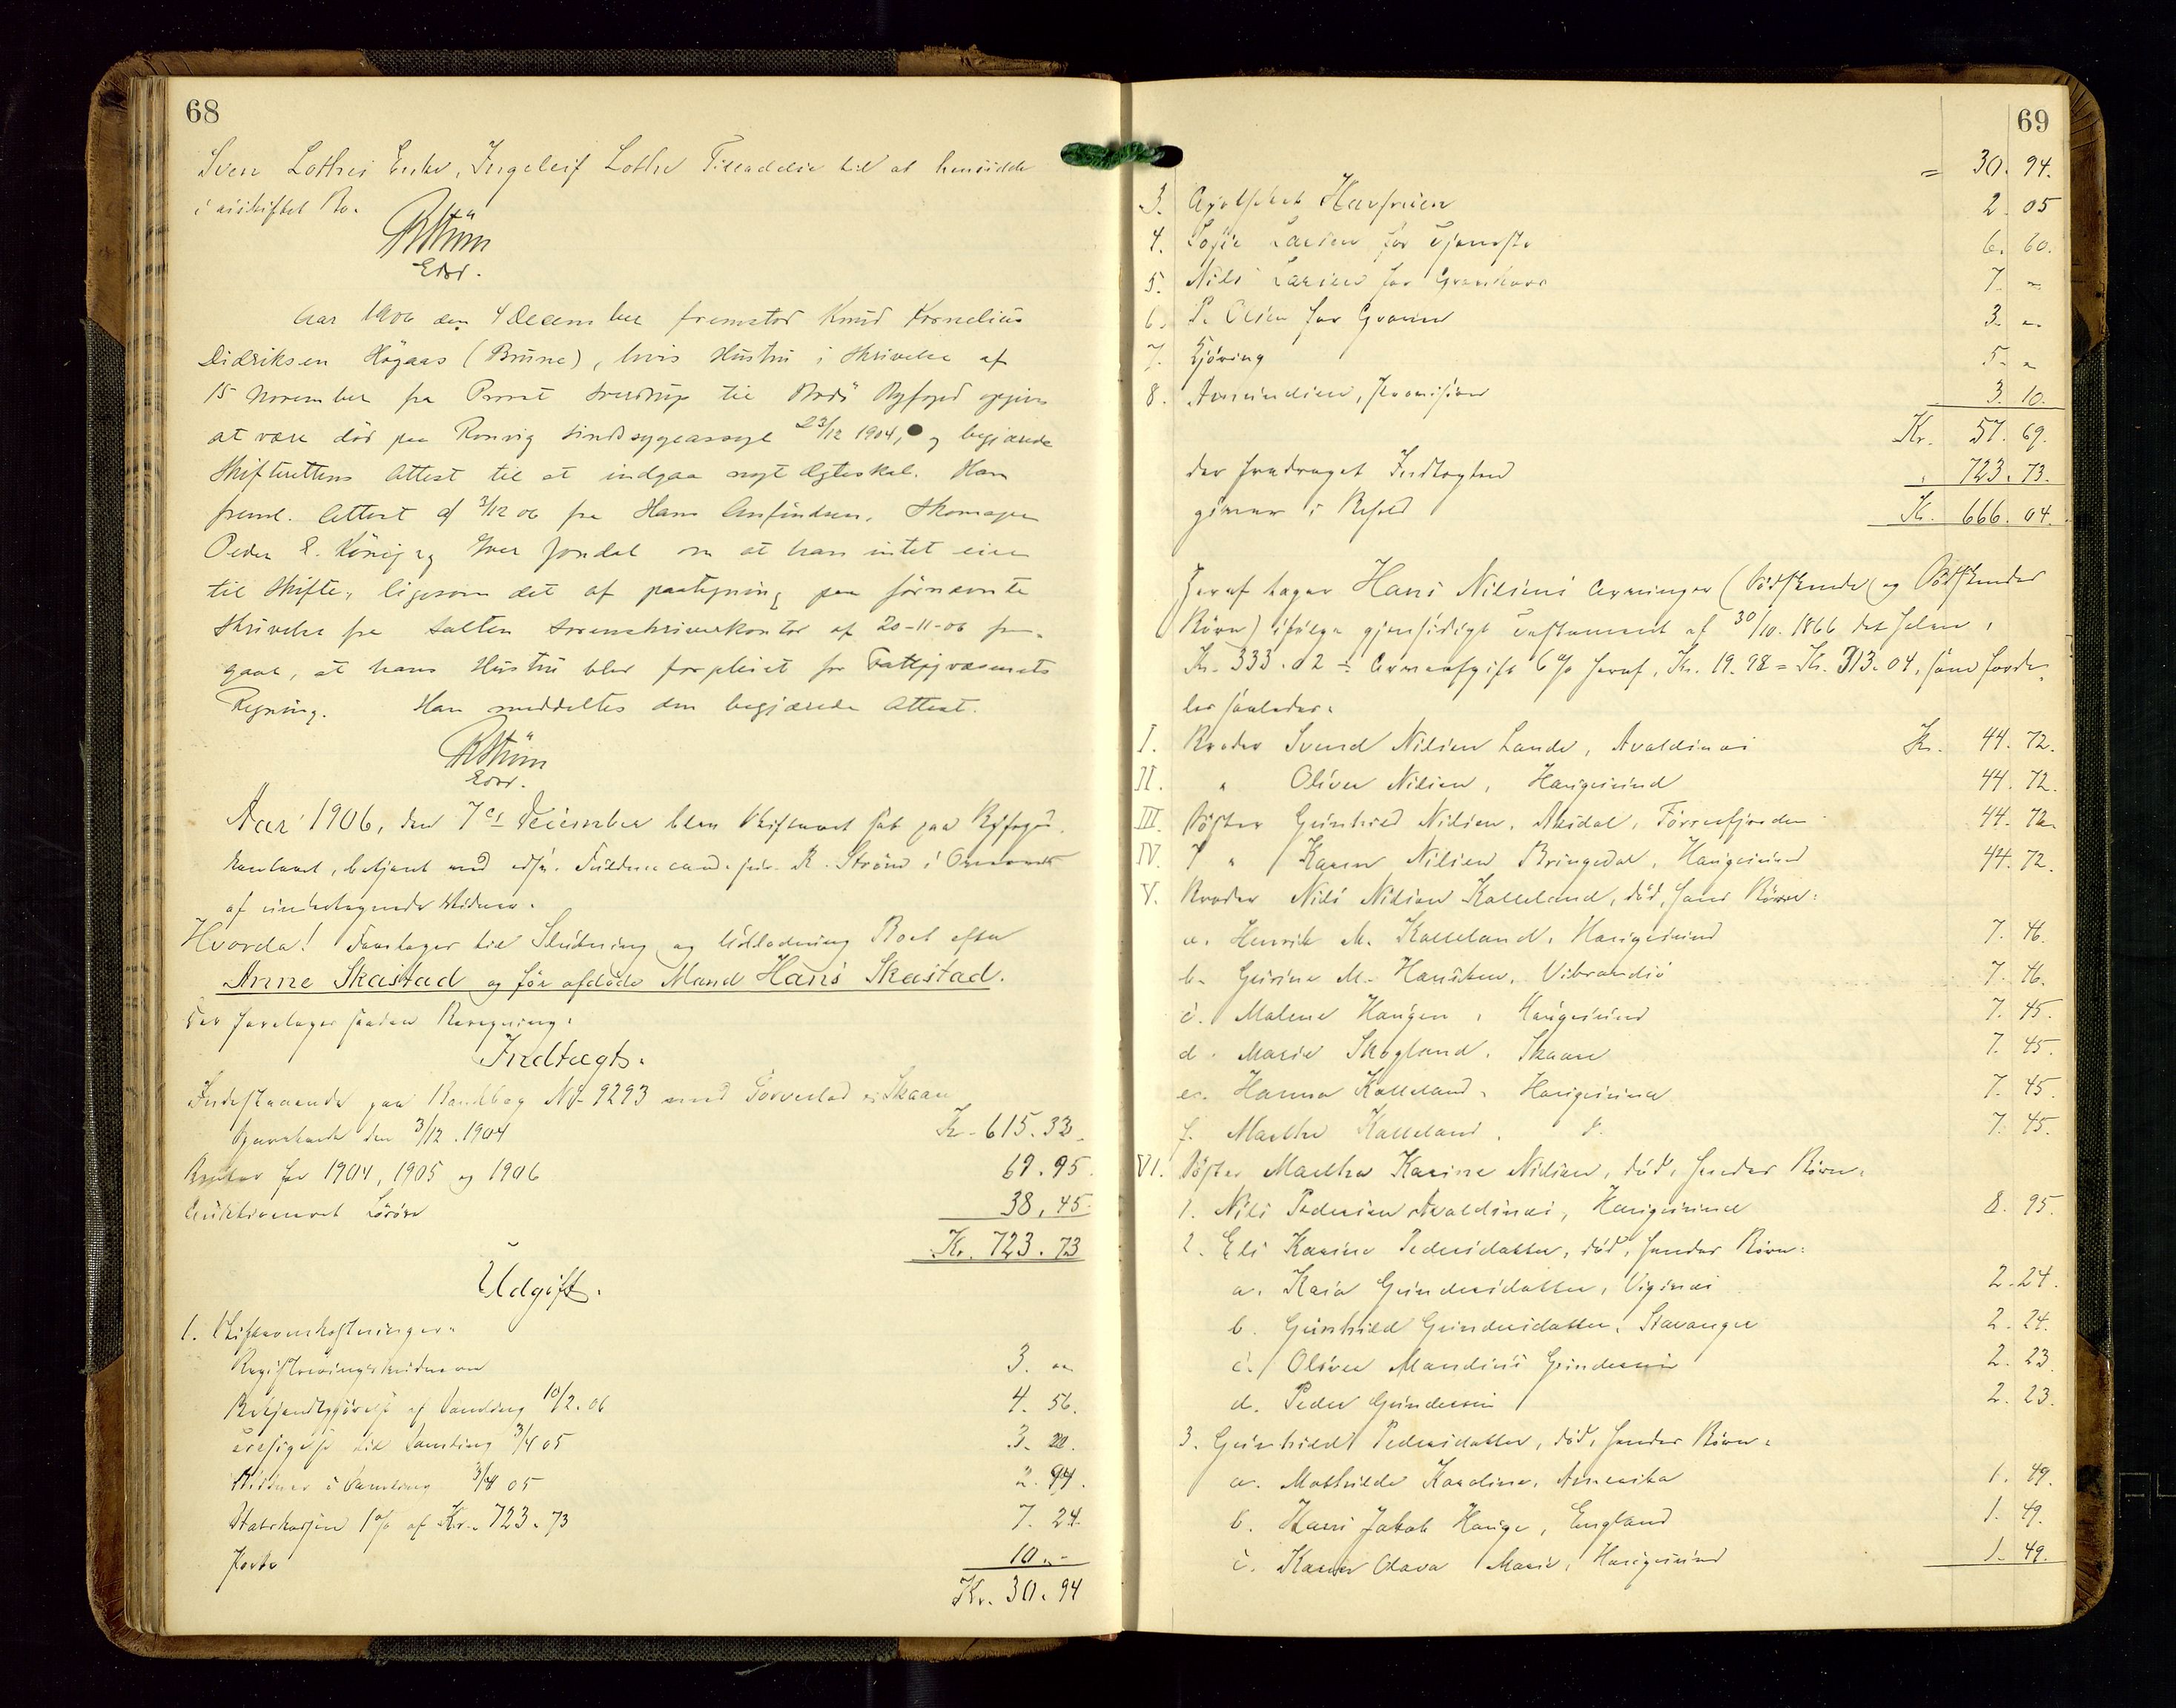 68
Sven Lothes Enke, Ingeleif Lothe Tilladelse til at hensidde
i uskiftet Bo.
RStrøm
Edsv.
Aar 1906 den 4 December fremstod Knud Kornelius
Didriksen Högaas (Brune), hvis Hustru i Skrivelse af
15 November fra Provst Sverdrup til Bodö Byfoged opgives
at være död paa Rönvig Sindssygeasyl 23/12 1904, og begjærede
Skifterettens Attest til at indgaa nyt Ægteskab. Han
freml. Attest af 3/12 06 fra Hans Amundsen, Skomager
Peder E. König og Iver Jondal om at han intet eier
til Skifte, ligesom det af paategning paa förnævnte
Skrivelse fra Salten Sorenskriverkontor af 20-11-06 frem-
gaar, at hans Hustru blev forpleiet for Fattigvæsenets
Regning. Han meddeltes den begjærede Attest.
RStrøm
Edsv.
Aar 1906, den 7de December blev Skifteret sat paa Byfogd-
kontoret, betjent ved edsv. Fuldm. cand. jur. R. Ström i Overværelse
af undertegnede Vidner.
Hvorda! Foretages til Slutning og Udlodning Boet efter
Anne Skastad og för afdöde Mand Hans Skastad.
Der foretages saadan Beregning:
Indtægt.
Indestaaende paa Bankbog No 9293 med Torvestad & Skaare
Sparebank den 3/12.1904 Kr. 615.33.
Renter for 1904, 1905 og 1906 69.95.
Auktioneret Lösöre 38.45.
Kr. 723.73
Udgift.
1. Skifteomkostninger:
Registreringsvidnerne 3. "
Bekjendtgjörelse af Samling 10/2.06 4. 56.
Tilsigelse til Samling 3/4 05 3. 20.
Vidner i Samling 3/4 05 2. 94.
Statskassen 1% af Kr. 723.73 7. 24.
Porto 10. -
Kr. 30.94
69
= 30. 94.
3. Hansen 2. 05
4. Sofie Larsen for Tjeneste 6. 60.
5. Nils Larsen for 7. "
6. P. Olsen for Graven 3. "
7. Kjöring 5. "
8. Amundsen, Provision 3. 10.
Kr. 57. 69.
der fradraget Indtægten " 723. 73.
giver i Behold Kr. 666. 04.
Heraf tager Hans Nilsens Arvinger (Södskende og Södskendes
Börn) ifölge gjensidigt Testament af 30/10.1866 det halve,
Kr. 333.02 ÷ Arveafgift 6% heraf, Kr. 19.98 = Kr. 313.04, som forde-
les saaledes:
I. Broder Svend Nilsen Lande, Avaldsnes Kr. 44. 72.
II. " Oliver Nilsen, Haugesund 44. 72.
III. Söster Gunhild Nilsen, Aksdal, Förresfjorden 44. 72.
IV. " Karen Nilsen Bringedal, Haugesund 44. 72.
V. Broder Nils Nilsen Kalleland, död, hans Börn:
a. Henrik M. Kalleland, Haugesund 7. 46.
b. Gurine M. Hansken, Vibrandsö 7. 46.
c. Malene Haugen, Haugesund 7. 45.
d. Marie Skogland, Skaare 7. 45.
e. Hanna Kalleland, Haugesund 7. 45.
f. Marthe Kalleland, do. 7. 45.
VI. Söster Marthe Karine Nilsen, död, hendes Börn:
1. Nils Pedersen Avaldsnes, Haugesund 8. 95.
2. Eli Karine Pedersdatter, död, hendes Börn:
a. Kaia Gundersdatter, Vignes 2. 24.
b. Gunhild Gundersdatter, Stavanger 2. 24.
c. Oliver Mandius Gundersen 2. 23.
d. Peder Gundersen 2. 23.
3. Gunhild Pedersdatter, död, hendes Börn:
a. Mathilde Karoline, Amerika 1. 49.
b. Hans Jakob Hauge, England 1. 49.
c. Karen Olava Marie, Haugesund 1. 49.